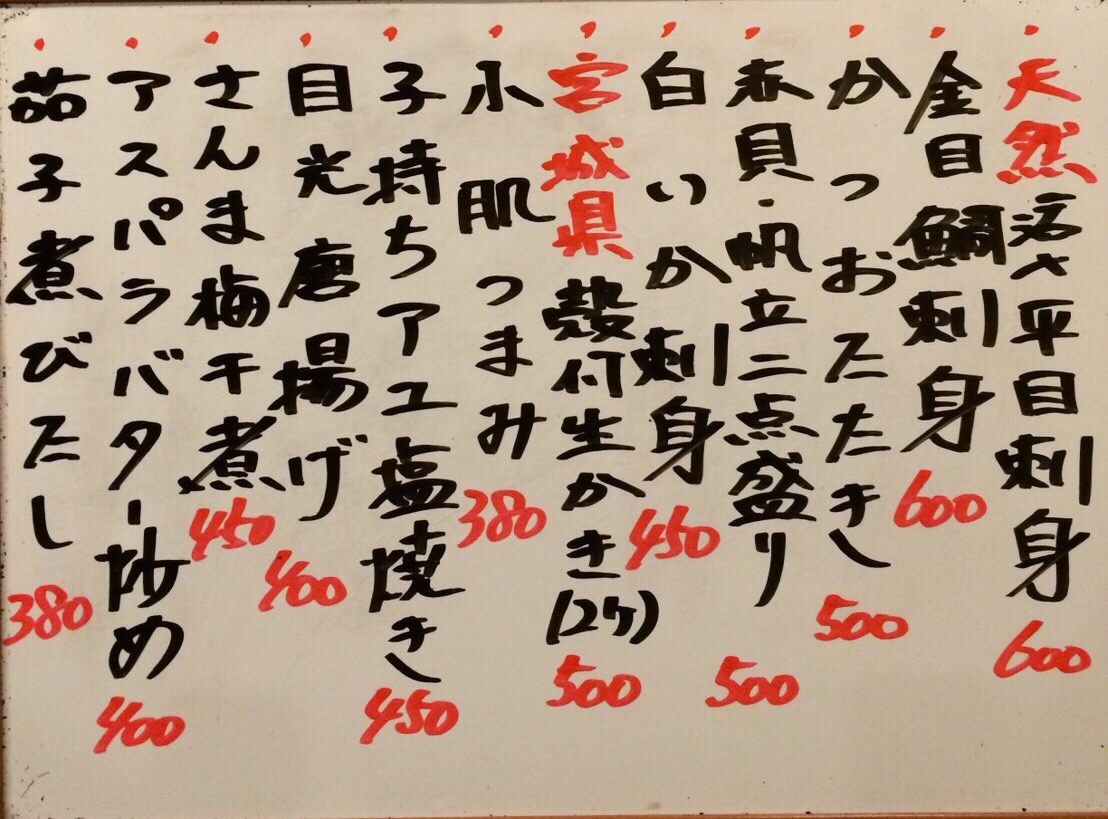 ・天然活〆平目刺身 600
・金目鯛刺身 600
・かつおたたき 500
・赤貝・帆立二点盛り 500
・白いか刺身 450
・宮城県殻付生かき(2ケ) 500
・小肌つまみ 380
・子持ちアユ塩焼き 450
・目光唐揚げ 400
・さんま梅干煮 450
・アスパラバター炒め 400
・茄子煮びたし 380